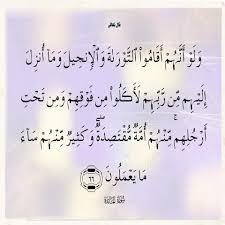 قال تعالى
وَلَوْ أَنَّهُمْ أَقَامُوا۟ ٱلتَّوْرَىٰةَ وَٱلْإِنجِيلَ وَمَآ أُنزِلَ
إِلَيْهِم مِّن رَّبِّهِمْ لَأَكَلُوا۟ مِن فَوْقِهِمْ وَمِن تَحْتِ
أَرْجُلِهِم مِّنْهُمْ أُمَّةٌ مُّقْتَصِدَةٌ ۖ وَكَثِيرٌ مِّنْهُمْ سَآءَ
مَا يَعْمَلُونَ ٦٦
سورة المائدة